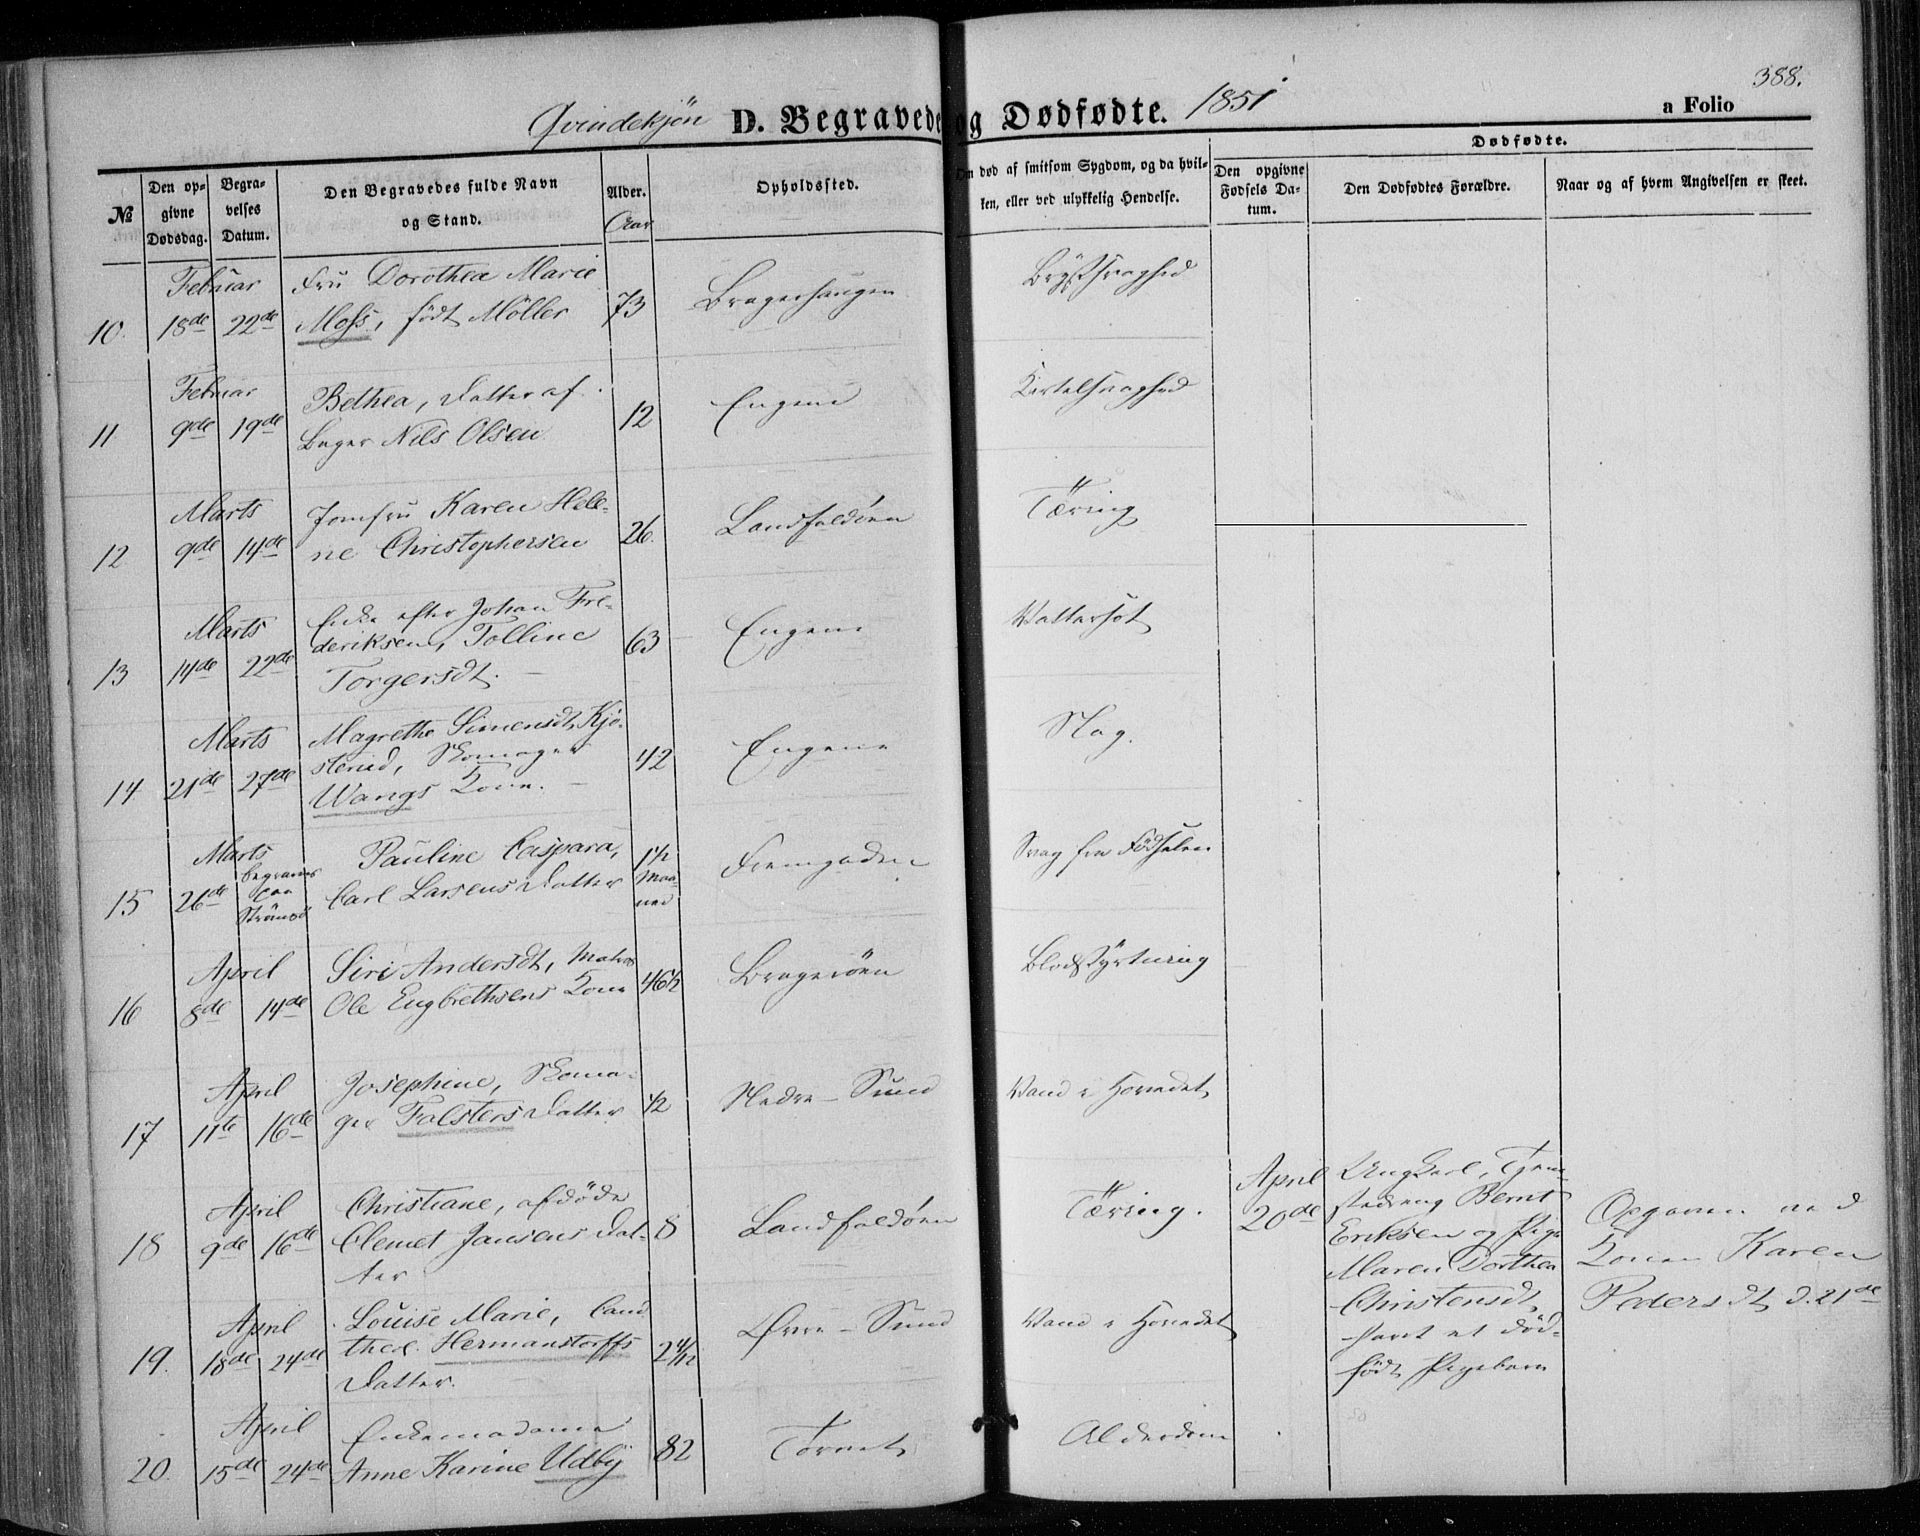 388.
Qvindekjön D. Begravede og Dödfödte. 1851
a Folio
№
Den op-
givne
Dødsdag.
Begra-
velses
Datum.
Den Begravedes fulde Navn
og Stand.
Alder.
Aar
Opholdssted.
Om død af smitsom Sygdom, og da hvil-
ken, eller ved ulykkelig Hendelse.
Dødfødte.
Den opgivne
Fødsels Da-
tum.
Den Dødfødtes Forældre.
Naar og af hvem Angivelsen er skeet.
10. Februar 18de 22de
Fru Dorothea Marie
Moss, födt Möller
73
Bragerhaugen
Brÿstsvaghed
11 Februar 9de 19de
Bethea, Datter af
Bager Nils Olsen
12
Engene
Kirtelsvaghed
12 Marts 9de 14de
Jomfru Karen Hele-
ne Christophersen
26.
Landfaldöen
Tæring
13 Marts 14de 22de
Enke efter Johan Fre-
deriksen, Tolline
Torgersdt.
63
Engene
Vattersot
14 Marts 21de 27de
Magrethe Simensdt, Kjö-
sterud, Skomager
Wangs Kone.
42
Engene
Slag.
15 Marts 26de
begraves
paa
Strömsö
Pauline Caspara,
Carl Larsens Datter
1½
Maa-
ned
Fremgaden
Svag fra Födselen
16 April 8de 14de
Siri Andersdt, Matros
Ole Engbrethsens Kone
46½
Brageröen
Blodstÿrtning
17 April 11te 16de
Josephine, Skoma-
ger Falsters Datter
½
Nedre-Sund
Vand i Hovedet
18 April 9de 16de
Christiane, afdöde
Clemet Jansens Dat-
ter
8
Landfaldöen
Tæring.
April
20de
Ungkarl, Tjene-
stedreng Bernt
Eriksen og Pige
Maren Dorthea
Christensdt,
havt et död-
födt Pigebarn
Opgiven ved
Konen Karen
Pedersdt d. 21de
19. April 18de 24de
Louise Marie, Cand
theol. Hermanstorffs
Datter.
2 4/12
Øvre-Sund
Vand i Hovedet
20. April 15de 24de
Enkemadame
Anne Karine Udbÿ
82
Torvet
Alderdom